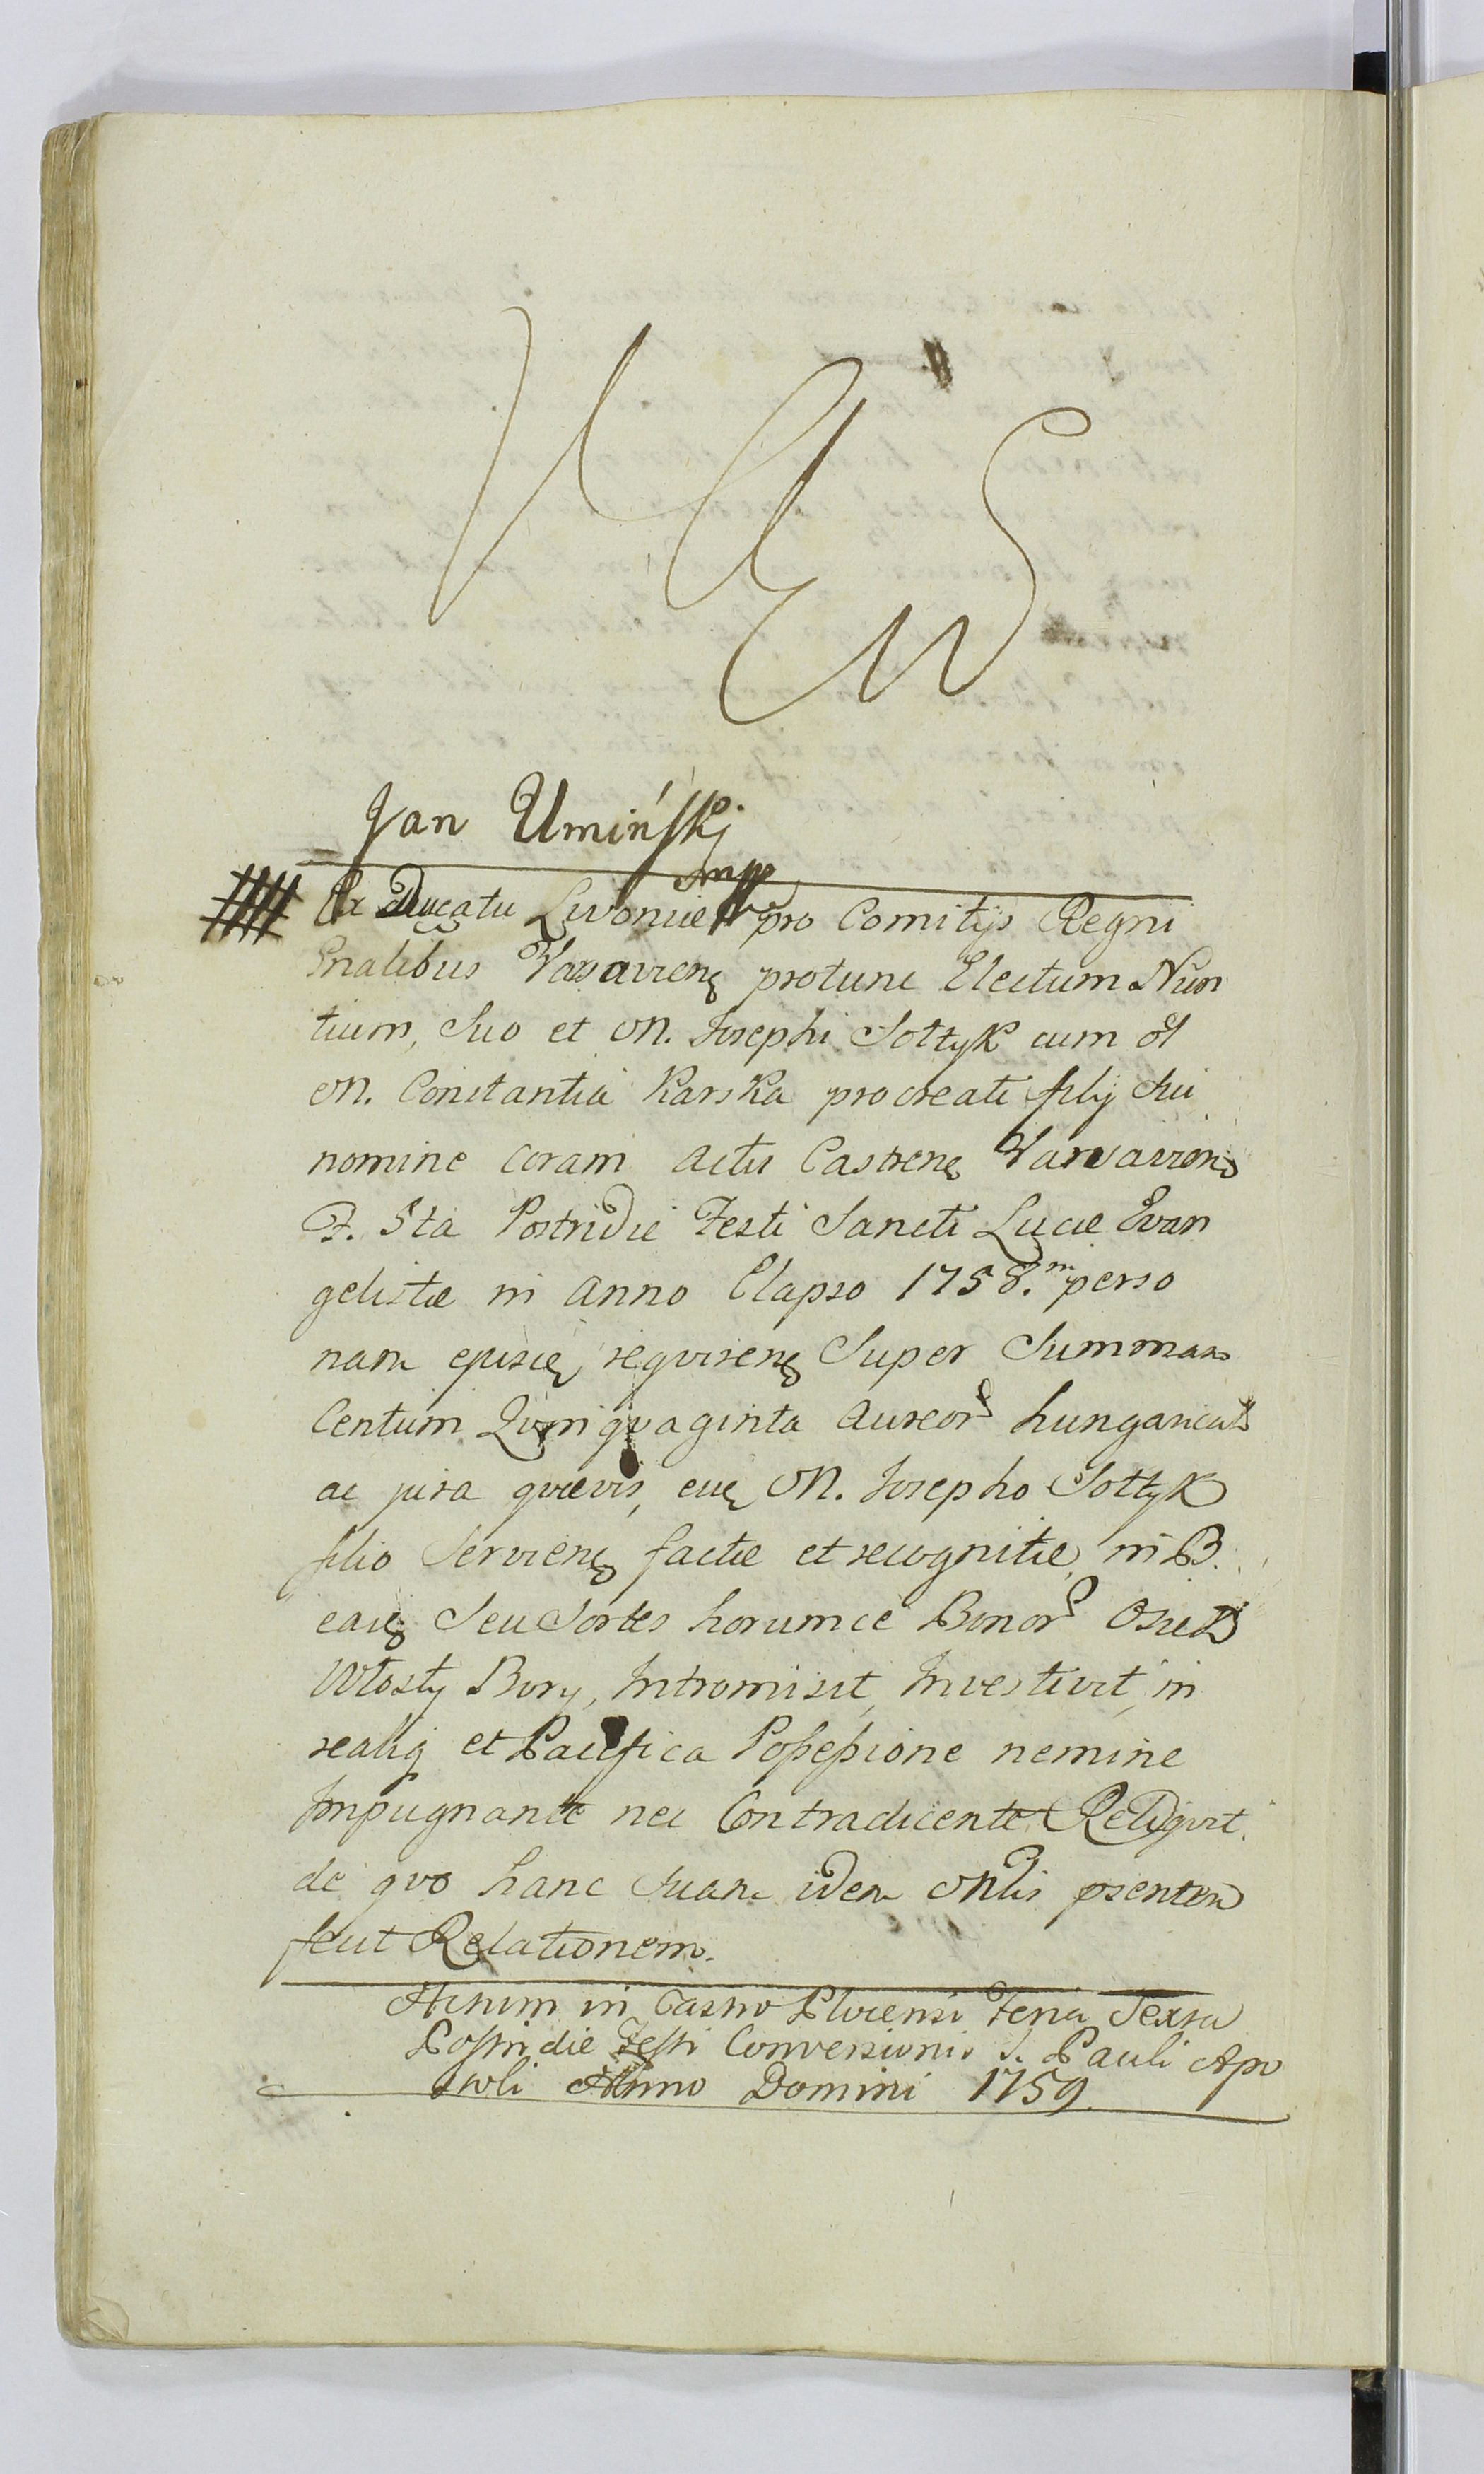 Jan Umińskj
mpp
Ex Ducatu Livoniæ pro Comitÿs Regni
Gnalibus Varsavieñ protunc Electum Nun
tium, Suo et M. Josephi Sołtyk cum ol
M. Constantia Karska procreati filÿ sui
nomine coram actis Castreñ Varsavieñ
F. 5ta Postridie Festi Sancti Lucæ Evan
gelistæ in Anno Elapso 1758. in perso
nam requireñ Super Summam
Centum Quinquaginta Aureor hungarical
ac jura quævis, M. Josepho Sołtyk
filio Servieñ factæ et recognitæ, in B.
eaq Seu Sortes horumce Bonor
Włosty Bory, Intromisit, Investivit, in
realiq et Pacifica Possessione nemine
Impugnante nec Contradicente Reliqvit.
de qvo hanc suam idem Mlis psentem
fecit Relationem.
Actum in Castro Plocensi Feria Sexta
Postridie Festi Conversionis S. Pauli Apo
stoli Anno Domini 1759